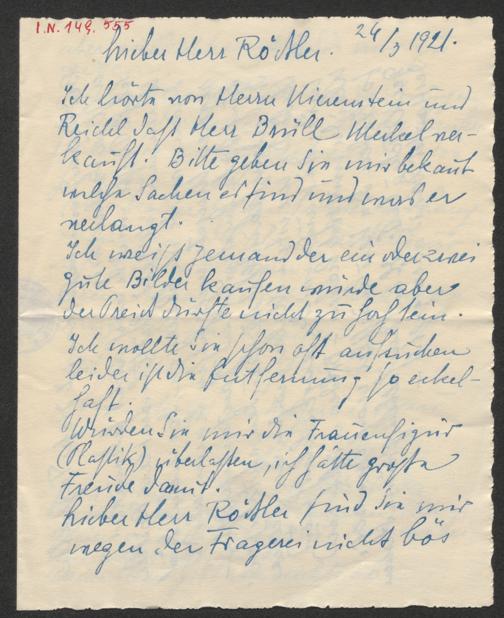 I.N. 149.555
24/3 1921.
Lieber Herr Rössler.
Ich hörte von Herrn Nirenstein und
Reichel daß Herr Brüll Merkel ver-
kauft. Bitte geben Sie mir bekannt
welche Sachen es sind und was er
verlangt.
Ich weiß jemand der ein oder zwei
gute Bilder kaufen würde aber
der Preis dürfte nicht zu hoch sein.
Ich wollte Sie schon oft aufsuchen
leider ist die Entfernung so ekel-
haft.
Würden Sie mir die Frauenfigur
(Plastik) überlassen, ich hätte große
Freude damit.
Lieber Herr Rössler sind Sie mir
wegen der Fragerei nicht bös